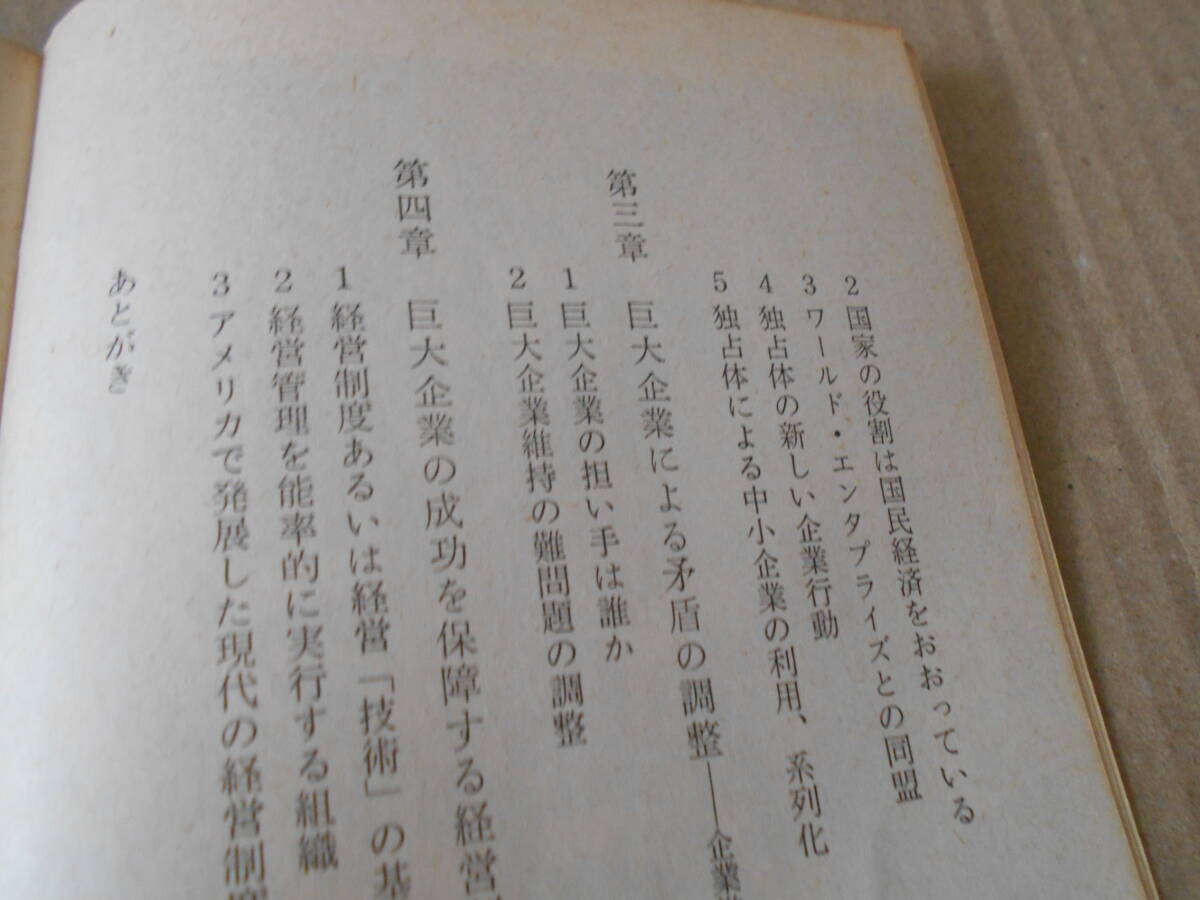 2 国家の役割は国民経済をおおっている
3 ワールド・エンタプライズとの同盟
4 独占体の新しい企業行動
5 独占体による中小企業の利用、系列化
第三章 巨大企業による矛盾の調整——企業
1 巨大企業の担い手は誰か
2 巨大企業維持の難問題の調整
第四章 巨大企業の成功を保障する経営
1 経営制度あるいは経営「技術」の基
2 経営管理を能率的に実行する組織
3 アメリカで発展した現代の経営制度
あとがき